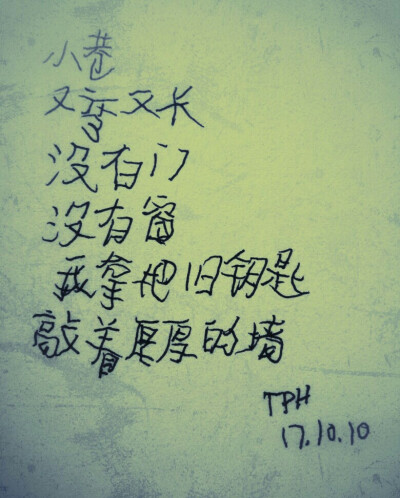 小巷
又弯又长
没有门
没有窗
我拿把旧钥匙
敲着厚厚的墙
TPH
17.10.10